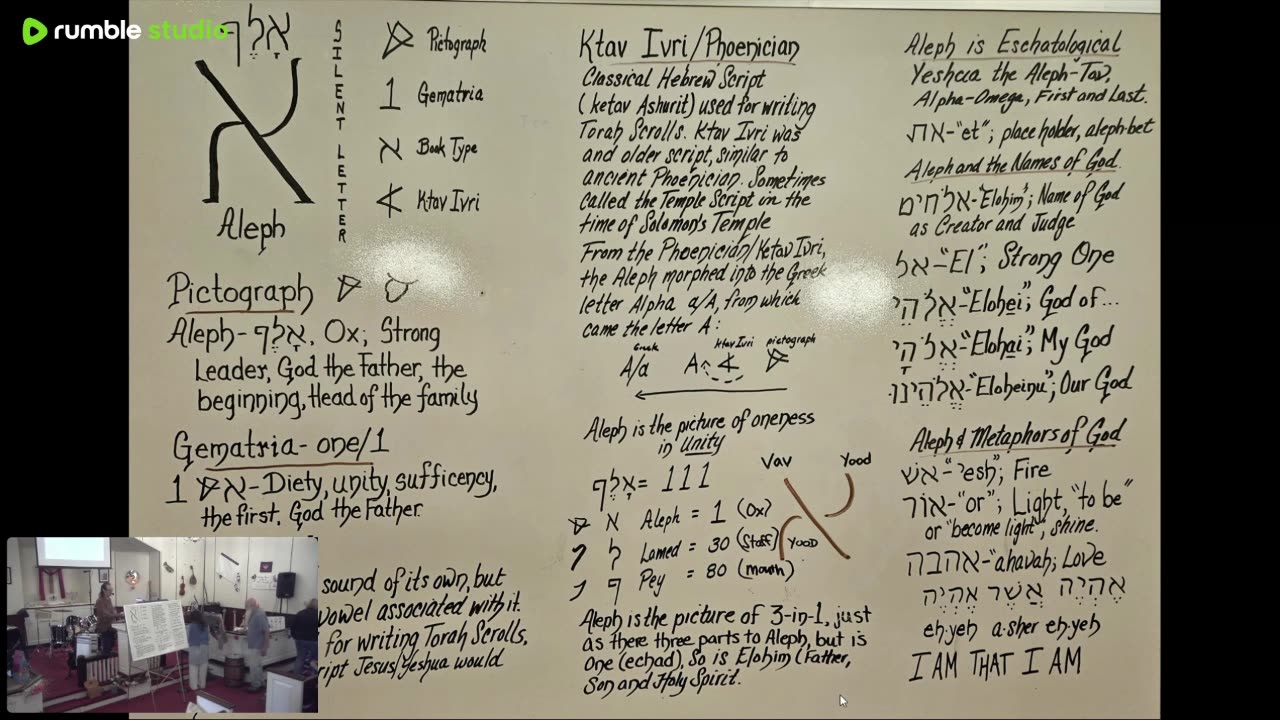 rumble studio
אָלֶף
SILENT LETTER
Aleph
Pictograph
1 Gematria
א Book Type
Ktav Ivri
Pictograph
Aleph- אָלֶף, Ox; Strong
Leader, God the Father, the
beginning, Head of the family
Gematria- one/1
1 א- Diety, unity, sufficency,
the first, God the Father.
sound of its own, but
vowel associated with it.
for writing Torah Scrolls,
ript Jesus/Yeshua would
Ktav Ivri/Phoenician
Classical Hebrew Script
(ketav Ashurit) used for writing
Torah Scrolls. Ktav Ivri was
and older script, similar to
ancient Phoenician. Sometimes
called the Temple Script in the
time of Solomon's Temple
From the Phoenician/Ketav Ivri,
the Aleph morphed into the Greek
letter Alpha α/A, from which
came the letter A:
Greek ktav Ivri pictograph
A/α A
Aleph is the picture of oneness
in Unity
אָלֶף = 111
א Aleph = 1 (Ox)
ל Lamed = 30 (Staff)
ף Pey = 80 (mouth)
Vav Yood
YOOD
Aleph is the picture of 3-in-1, just
as there three parts to Aleph, but is
One (echad), So is Elohim (Father,
Son and Holy Spirit.
Aleph is Eschatological
Yeshua the Aleph-Tav,
Alpha-Omega, First and Last.
את-"et"; place holder, aleph-bet
Aleph and the Names of God
אלהים-"Elohim"; Name of God
as Creator and Judge
אל-"El"; Strong One
אֱלֹהֵי-"Elohei"; God of...
אֱלֹהָי-"Elohai"; My God
אֱלֹהֵינוּ-"Eloheinu"; Our God
Aleph & Metaphors of God
אֵשׁ-"esh"; Fire
אוֹר-"or"; Light, "to be"
or "become light", shine.
אהבה-"ahavah; Love
אֶהְיֶה אֲשֶׁר אֶהְיֶה
eh·yeh a·sher eh·yeh
I AM THAT I AM